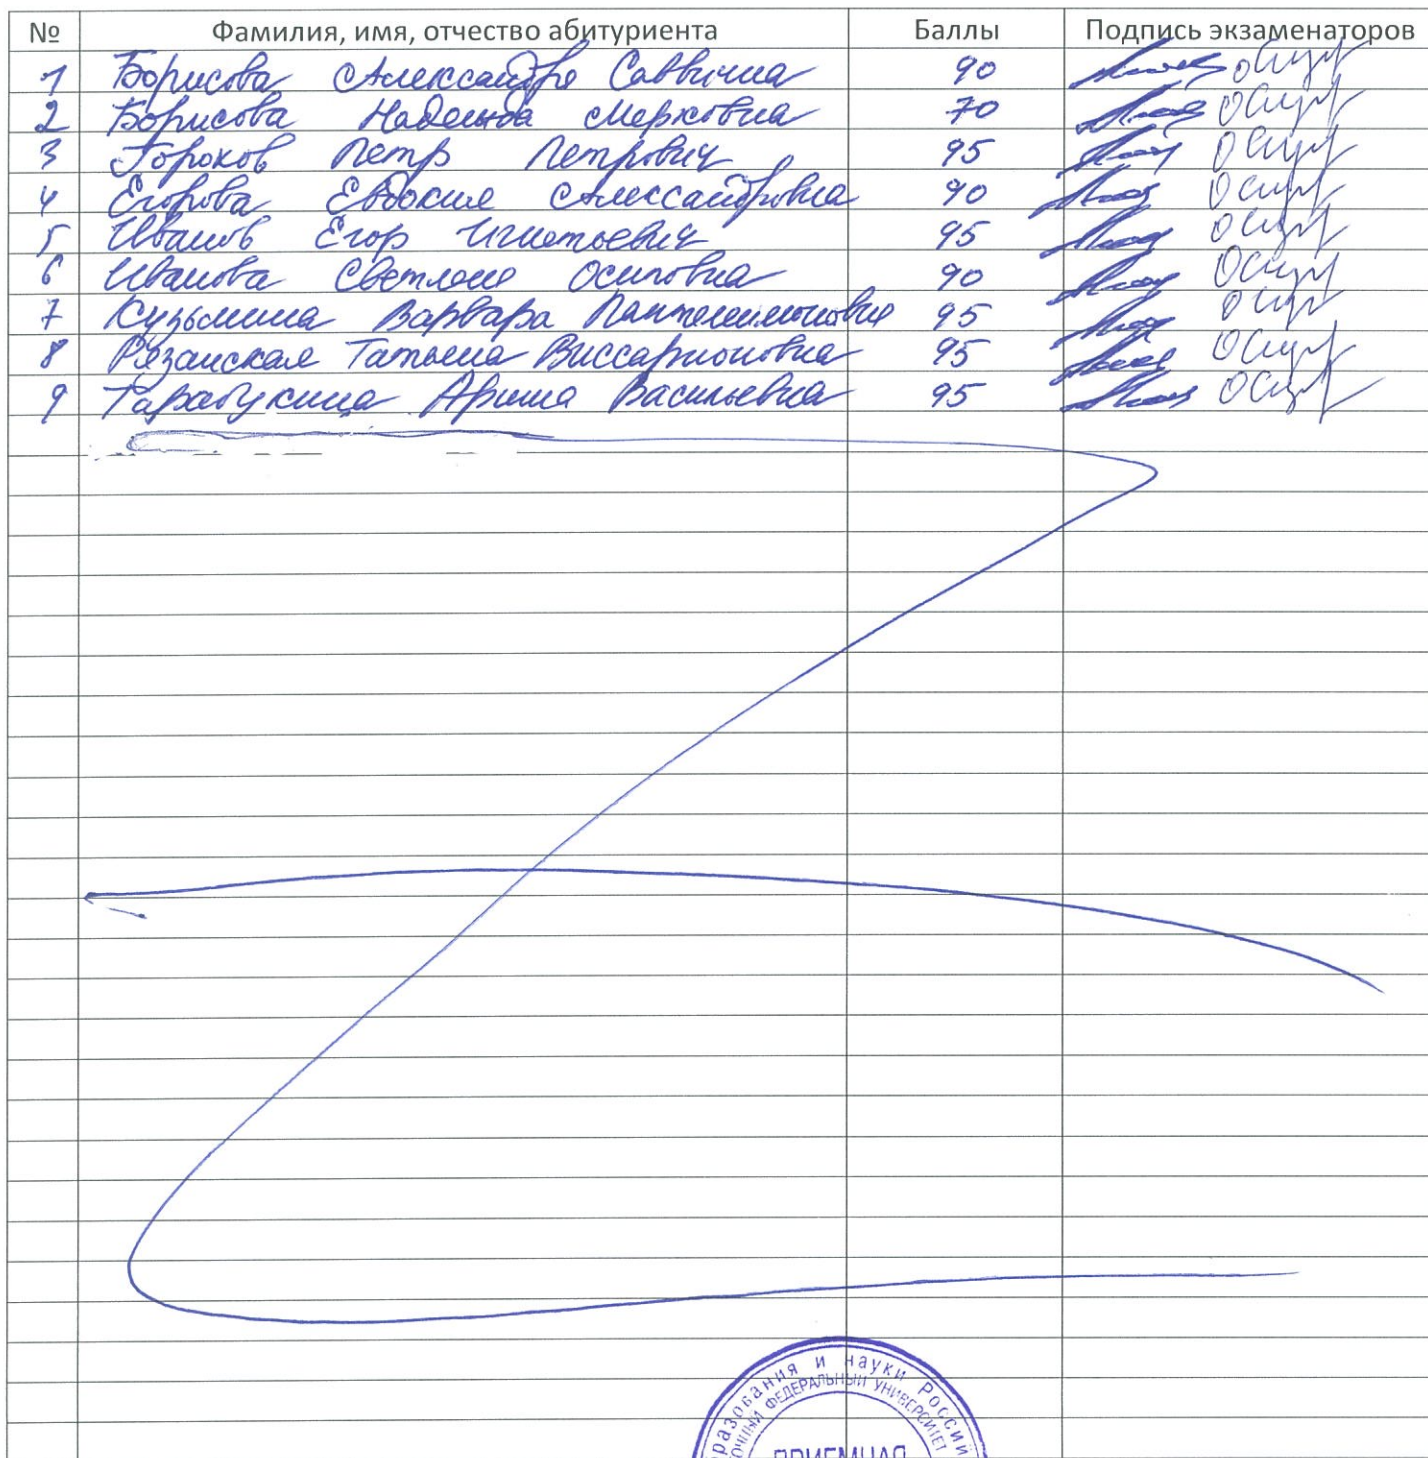 № Фамилия, имя, отчество абитуриента Баллы Подпись экзаменаторов
1 Борисова Александра Саввична 90
2 Борисова Надежда Марковна 70
3 Горохов Петр Петрович 95
4 Егорова Евдокия Александровна 90
5 Иванов Егор Игнатьевич 95
6 Иванова Светлана Осиповна 90
7 Кузьмина Варвара Пантелеймоновна 95
8 Рязанская Татьяна Виссарионовна 95
9 Тарабукина Арина Васильевна 95
разования и науки Россий
ОЧНЫЙ ФЕДЕРАЛЬНЫЙ УНИВЕРСИТЕТ
ПРИЕМНАЯ